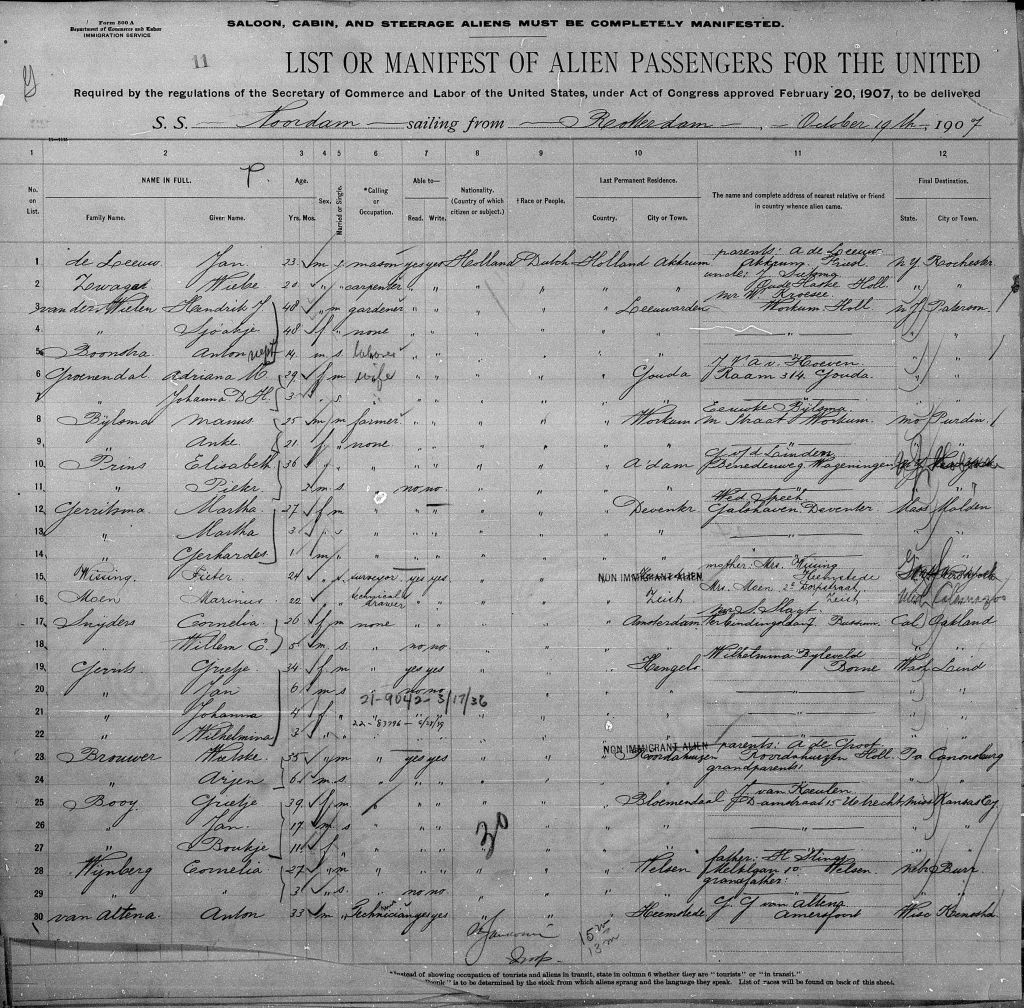 Form 500 A
Department of Commerce and Labor
IMMIGRATION SERVICE
SALOON, CABIN, AND STEERAGE ALIENS MUST BE COMPLETELY MANIFESTED.
11
LIST OR MANIFEST OF ALIEN PASSENGERS FOR THE UNITED
Required by the regulations of the Secretary of Commerce and Labor of the United States, under Act of Congress approved February 20, 1907, to be delivered
S. S. Noordam sailing from Rotterdam, October 19th, 1907
1 2 3 4 5 6 7 8 9 10 11 12
No. on List. NAME IN FULL. Age. Sex. Married or Single. *Calling or Occupation. Able to— Nationality. (Country of which citizen or subject.) †Race or People. Last Permanent Residence. The name and complete address of nearest relative or friend in country whence alien came. Final Destination.
Family Name. Given Name. Yrs. Mos. Read. Write. Country. City or Town. State. City or Town.
parents: A de Leeuw
1 de Leeuw Jan 23 m s mason yes yes Holland Dutch Holland Akkrum Akkrum Friesl N.Y. Rochester
uncle: J
2 Wiebe 20 " " carpenter " " " " " Haske Holl " "
mr W. Kroese
3 van der Wielen Hendrik J. 48 " m gardener " " " " " Leeuwarden Workum Holl N.J. Paterson
4 " 48 f " none " " " " " " " " "
5 Boonstra Anton 14 m s laborer " " " " " " " " "
J. V. a. v. Hoeven
6 Groenendal Adriana M. 29 f m wife " " " " " Gouda Raam 314 Gouda " "
7 " Johanna D. H. 3 " s " " " " " " " " "
Eeuwke Bylsma
8 Bylsma Manus 25 m m farmer " " " " " Workum Straat Workum Mo Purdin
9 Anke 21 f " none " " " " " " " " "
v/d Linden
10 Prins Elisabeth 36 " " " " " " " " A'dam Benedenweg Wageningen
11 " Pieter 2 m s " no no " " " " " "
Wed. Speek
12 Gerritsma Martha 27 f m " " " " Deventer Galshaven Deventer Mass Malden
13 " Martha 3 " s " " " " " " " " "
14 " Gerhardes 1 m " " " " " " " " " "
mother: Mrs. Wissing
15 Wissing Pieter 24 " s surveyor yes yes " " " NON IMMIGRANT ALIEN Heemstede
Mrs. Meen 2e Dorpstraat
16 Meen Marinus 22 " " technical drawer " " " " " Zeist Zeist Kalamazoo
mr S. Slagt
17 Snyders Cornelia 26 f m none " " " " " Amsterdam 7 Bussum Cal Oakland
18 " Willem C. 5 m s " no no " " " " " " "
Wilhelmina Byleveld
19 Gerrits Grietje 34 f m " yes yes " " " Hengelo Borne Wash Lind
20 " Jan 6 m s no no " " " " " " "
21-9042- 3/17/36
21 " Johanna 4 f " " " " " " " "
22-"83796-
22 " Wilhelmina 3 " " " " " " " "
NON IMMIGRANT ALIEN parents: A de Groot
23 Brouwer Wutske 35 " m " yes yes " " " Roordahuizen Roordahuizen Holl. Pa Canonsburg
grandparents:
24 " Arjen 6 m s " " " " " " "
J. van Keulen
25 Booy Grietje 39 f m " " " " " Bloemendaal Damstraat 15 Utrecht Miss Kansas Cy
26 " Jan 17 m s " " " " " " " " "
27 " Boukje 11 f " " " " " " " "
30
father: H
28 Wynberg Cornelia 27 " m " " " " " Velsen 10 Velsen Nebr Burr
29 " 3 " s " no no " " " "
grandfather:
G. J. van Altena
30 van Altena Anton 33 m " Technician yes yes " " " Heemstede Amersfoort Wisc Kenosha
15 m
13 m
*Instead of showing occupation of tourists and aliens in transit, state in column 6 whether they are "tourists" or "in transit."
People" is to be determined by the stock from which aliens sprang and the language they speak. List of races will be found on back of this sheet.